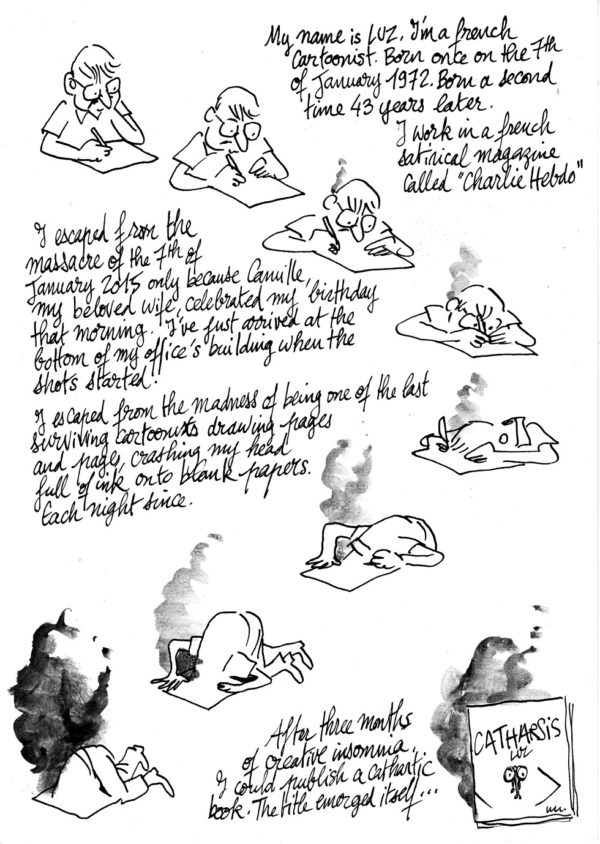 My name is LUZ. I'm a french
Cartoonist. Born once on the 7th
of January 1972. Born a second
time 43 years later.
I work in a french
satirical magazine
called "Charlie Hebdo"
I escaped from the
massacre of the 7th of
January 2015 only because Camille,
my beloved wife, celebrated my birthday
that morning. I've just arrived at the
bottom of my office's building when the
shots started.
I escaped from the madness of being one of the last
surviving cartoonists drawing pages
and pages, crashing my head
full of ink onto blank papers.
Each night since.
After three months
of creative insomnia,
I could publish a cathartic
book. The title emerged itself...
CATHARSIS
LUZ